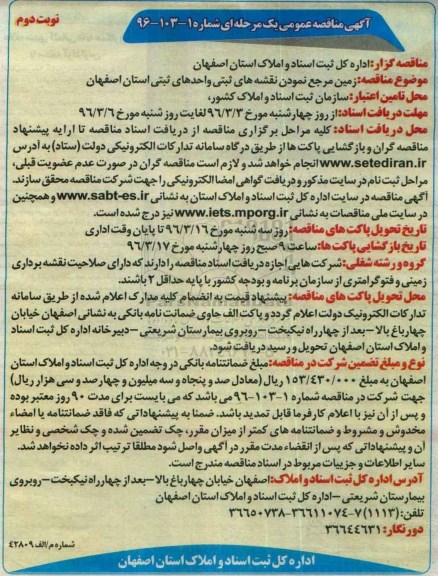 آگهی مناقصه عمومی یک مرحله ای شماره ۱-۱۰۳-۹۶
نوبت دوم
مناقصه گزار: اداره کل ثبت اسناد و املاک استان اصفهان
موضوع مناقصه: زمین مرجع نمودن نقشه های ثبتی واحدهای ثبتی استان اصفهان
محل تامین اعتبار: سازمان ثبت اسناد و املاک کشور،
مهلت دریافت اسناد: از روز چهارشنبه مورخ ۹۶/۳/۳ لغایت روز شنبه مورخ ۹۶/۳/۶
محل دریافت اسناد: کلیه مراحل برگزاری مناقصه از دریافت اسناد مناقصه تا ارایه پیشنهاد
مناقصه گران و بازگشایی پاکت ها از طریق درگاه سامانه تدارکات الکترونیکی دولت (ستاد) به آدرس
www.setediran.ir انجام خواهد شد و لازم است مناقصه گران در صورت عدم عضویت قبلی،
مراحل ثبت نام در سایت مذکور و دریافت گواهی امضا الکترونیکی را جهت شرکت مناقصه محقق سازند.
آگهی مناقصه در سایت اداره کل ثبت اسناد و املاک استان به نشانی www.sabt-es.ir و همچنین
در سایت ملی مناقصات به نشانی www.iets.mporg.ir نیز درج شده است.
تاریخ تحویل پاکت های مناقصه: روز سه شنبه مورخ ۹۶/۳/۱۶ تا پایان وقت اداری
تاریخ بازگشایی پاکت ها: ساعت ۹ صبح روز چهارشنبه مورخ ۹۶/۳/۱۷
گروه و رشته شغلی: شرکت هایی اجازه دریافت اسناد مناقصه را دارند که دارای صلاحیت نقشه برداری
زمینی و فتوگرامتری از سازمان برنامه و بودجه کشور با پایه حداقل ۲ باشند.
محل تحویل پاکت های مناقصه: پیشنهاد قیمت به انضمام کلیه مدارک اعلام شده از طریق سامانه
تدارکات الکترونیک دولت اعلام گردد و پاکت الف حاوی ضمانت نامه بانکی به نشانی اصفهان خیابان
چهارباغ بالا - بعد از چهارراه نیکبخت - روبروی بیمارستان شریعتی - دبیرخانه اداره کل ثبت اسناد
و املاک استان اصفهان تحویل و رسید دریافت شود.
نوع و مبلغ تضمین شرکت در مناقصه: مبلغ ضمانتنامه بانکی در وجه اداره کل ثبت اسناد و املاک استان
اصفهان به مبلغ ۱۵۳/۴۳۰/۰۰۰ ریال (معادل صد و پنجاه و سه میلیون و چهارصد و سی هزار ریال)
جهت شرکت در مناقصه شماره ۱-۱۰۳-۹۶ می باشد که می بایست برای مدت ۹۰ روز معتبر بوده
و پس از آن نیز با اعلام کارفرما قابل تمدید باشد. ضمنا به پیشنهاداتی که فاقد ضمانتنامه یا امضاء
مخدوش و مشروط و ضمانتنامه های کمتر از میزان مقرر، چک تضمین شده و چک شخصی و نظایر
آن و پیشنهاداتی که پس از انقضاء مدت مقرر در آگهی واصل شود مطلقا ترتیب اثر داده نخواهد شد.
سایر اطلاعات و جزییات مربوط در اسناد مناقصه مندرج است.
آدرس اداره کل ثبت اسناد و املاک: اصفهان خیابان چهارباغ بالا - بعد از چهارراه نیکبخت - روبروی
بیمارستان شریعتی - اداره کل ثبت اسناد و املاک استان اصفهان
تلفن: (۱۱۱۳) ۷-۳۶۶۱۱۰۷۴-۳۶۶۵۰۷۳۸
دورنگار: ۳۶۶۴۴۶۳۱
شماره م/الف ۴۲۸۰۹
اداره کل ثبت اسناد و املاک استان اصفهان